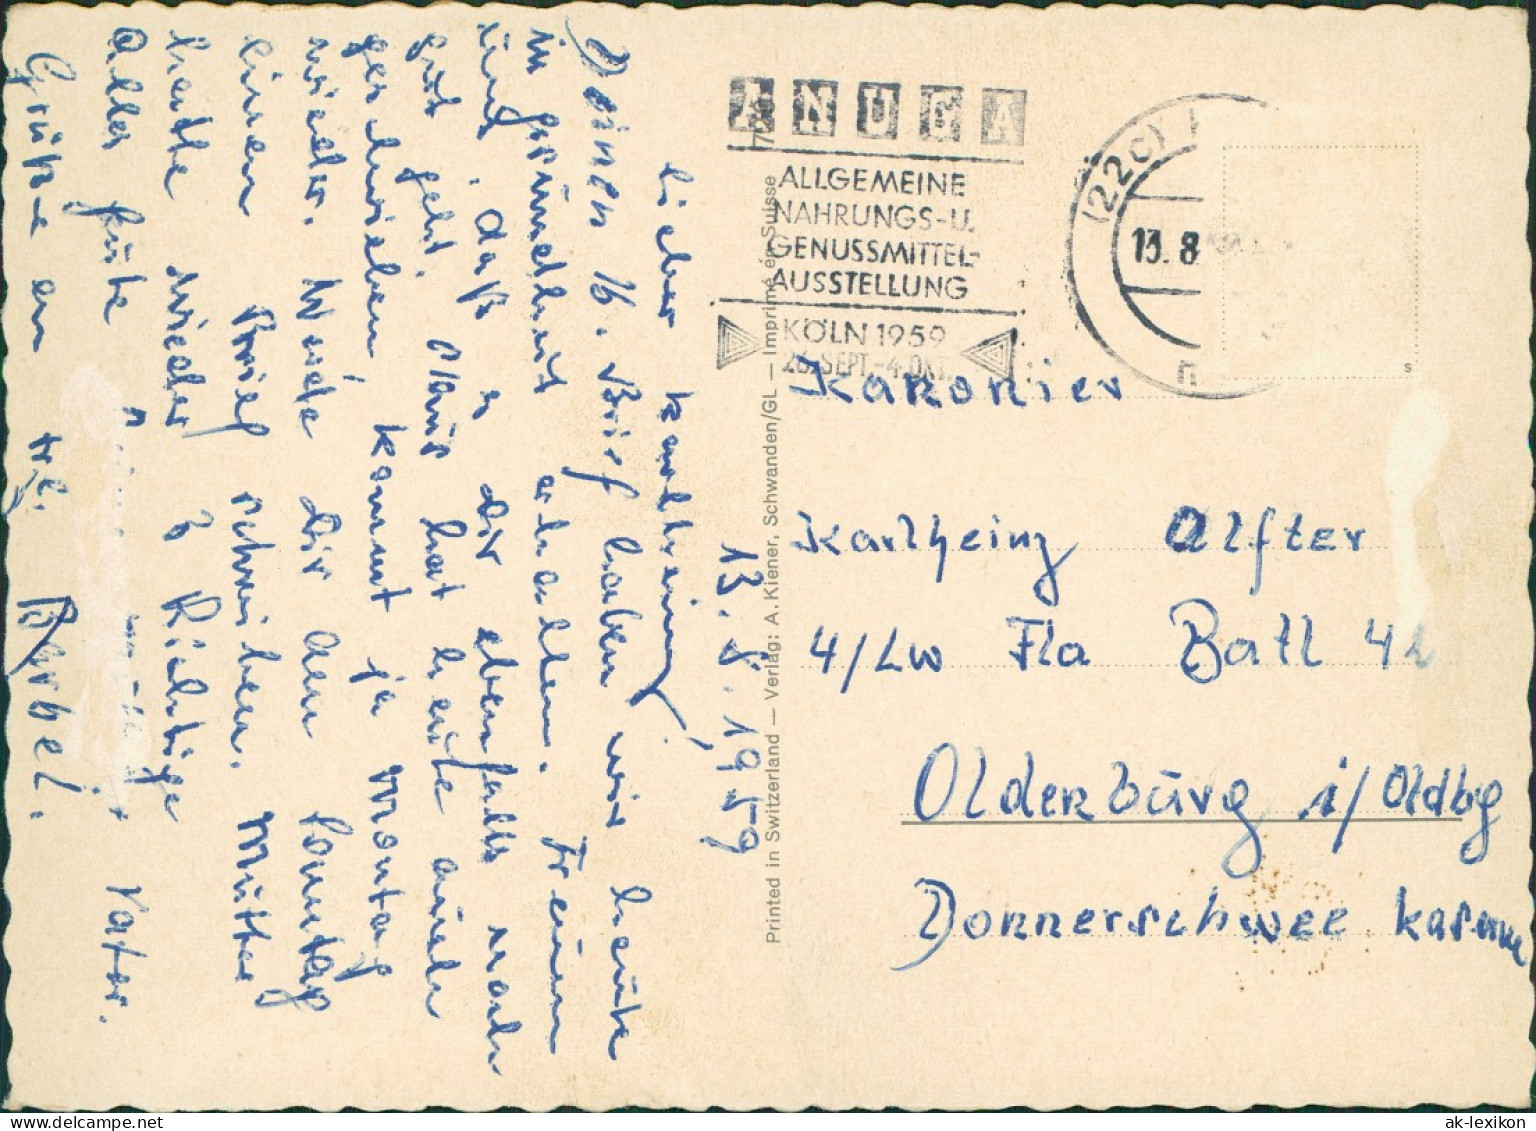 13. 8. 1959
Lieber Karlheinz,
Deinen 16. Brief haben wir heute
in Gesundheit erhalten. Freuen
uns, daß es Dir ebenfalls noch
gut geht. Klaus hat heute auch
geschrieben, kommt ja Montag
wieder. Werde Dir am Sonntag
einen Brief schreiben. Mutter
heute wieder Richtige
Alles Gute Vater.
Grüße an Bärbel.
ANUGA
ALLGEMEINE
NAHRUNGS-U.
GENUSSMITTEL-
AUSSTELLUNG
KÖLN 1959
26. SEPT.-4. OKT.
(22c)
13. 8
Printed in Switzerland — Verlag: A. Kiener, Schwanden/GL — Imprimé en Suisse
S
Kanonier
Karlheinz Alfter
4/Lw Fla Batl 42
Oldenburg i/Oldbg
Donnerschwee Kaserne
ak-ansichtskarten.de
ak-lexikon